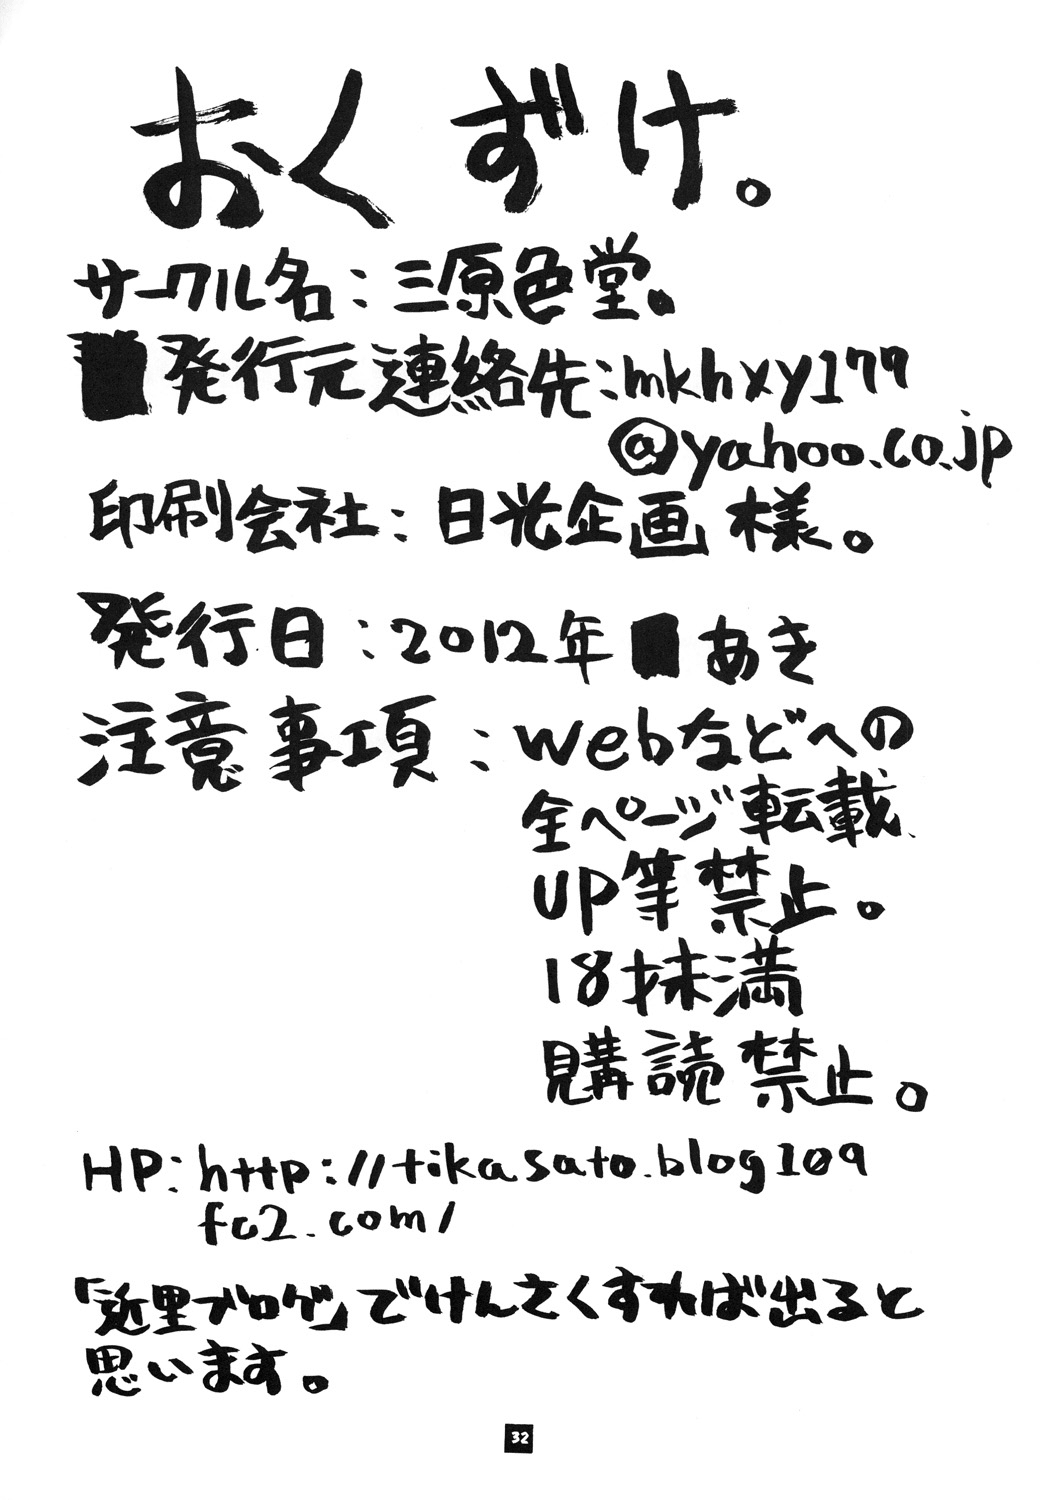 おくずけ。
サークル名：三原色堂。
発行元連絡先：mkhxy177
@yahoo.co.jp
印刷会社：日光企画 様。
発行日：2012年 あき
注意事項：webなどへの
全ページ転載、
UP等禁止。
18才未満
購読禁止。
HP：http://tikasato.blog109
fc2.com/
「近里ブログ」でけんさくすれば出ると
思います。
32